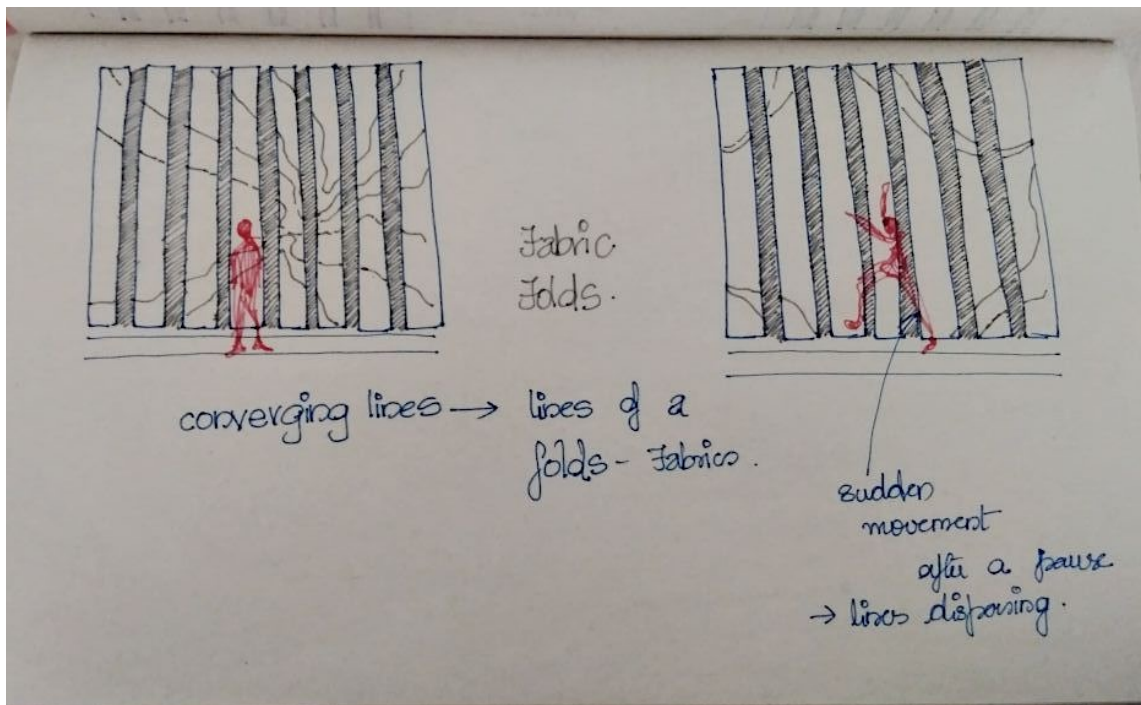 Fabric
Folds.
converging lines → lines of a
folds - Fabrics.
sudden
movement
after a pause
→ lines dispersing.